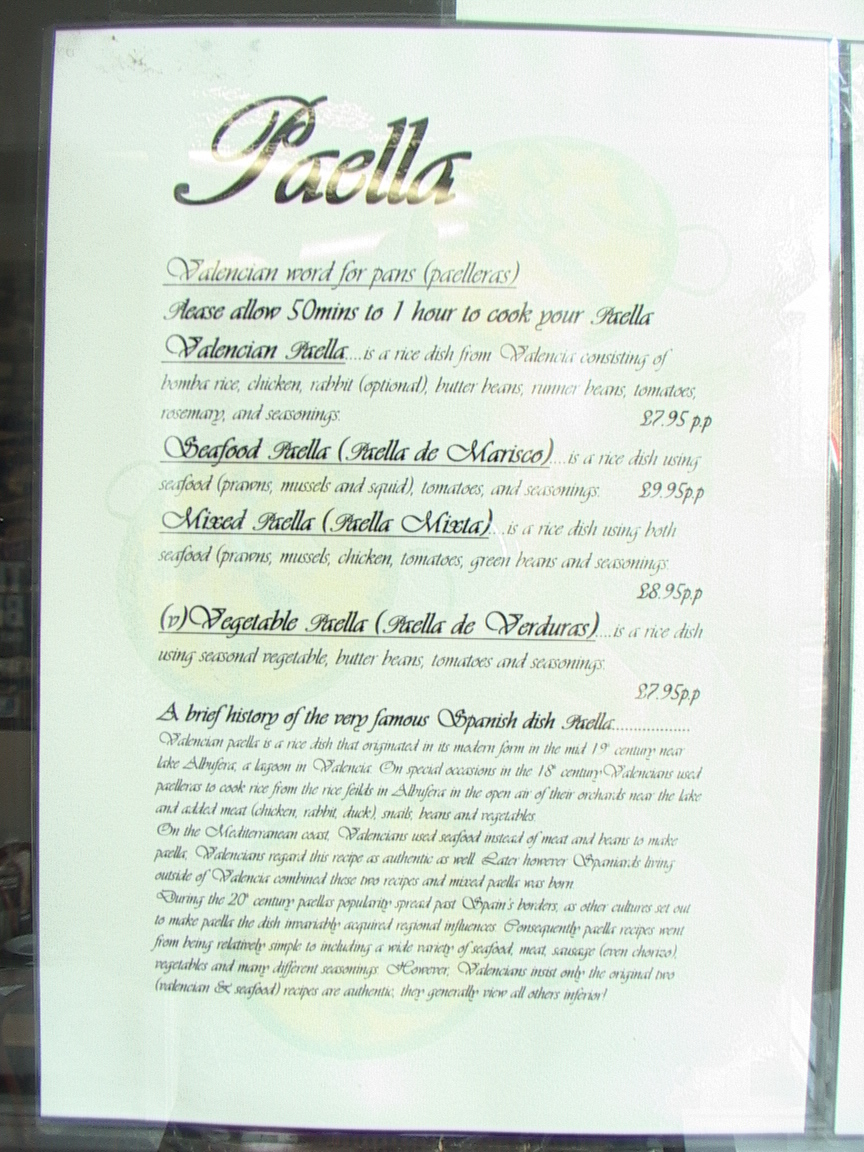 Paella
Valencian word for pans (paelleras)
Please allow 50mins to 1 hour to cook your Paella
Valencian Paella....is a rice dish from Valencia consisting of
bomba rice, chicken, rabbit (optional), butter beans, runner beans, tomatoes,
rosemary, and seasonings. £7.95 p.p
Seafood Paella (Paella de Marisco)....is a rice dish using
seafood (prawns, mussels and squid), tomatoes, and seasonings. £9.95p.p
Mixed Paella (Paella Mixta)....is a rice dish using both
seafood (prawns, mussels, chicken, tomatoes, green beans and seasonings.
£8.95p.p
(v)Vegetable Paella (Paella de Verduras)....is a rice dish
using seasonal vegetable, butter beans, tomatoes and seasonings.
£7.95p.p
A brief history of the very famous Spanish dish Paella...................
Valencian paella is a rice dish that originated in its modern form in the mid 19th century near
lake Albufera, a lagoon in Valencia. On special occasions in the 18th century Valencians used
paelleras to cook rice from the rice feilds in Albufera in the open air of their orchards near the lake
and added meat (chicken, rabbit, duck), snails, beans and vegetables.
On the Mediterranean coast, Valencians used seafood instead of meat and beans to make
paella, Valencians regard this recipe as authentic as well. Later however Spaniards living
outside of Valencia combined these two recipes and mixed paella was born.
During the 20th century paellas popularity spread past Spain's borders, as other cultures set out
to make paella the dish invariably acquired regional influences. Consequently paella recipes went
from being relatively simple to including a wide variety of seafood, meat, sausage (even chorizo),
vegetables and many different seasonings. However, Valencians insist only the original two
(valencian & seafood) recipes are authentic, they generally view all others inferior!